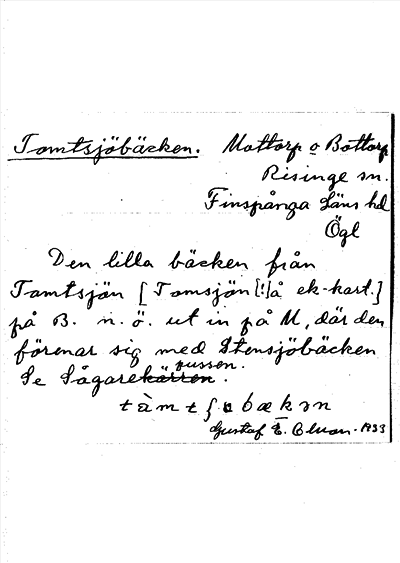 Tomtsjöbäcken. Mottorp o Bottorp
Risinge sn.
Finspånga läns hd
Ögl
Den lilla bäcken från
Tomtsjön [Tomsjön [!] å ek-kart.]
på B. n. ö. ut in på M, där den
förenar sig med Stensjöbäcken
Se Sågarekärren mossen.
tàmtʃɷbækən
Gustaf E. 1933